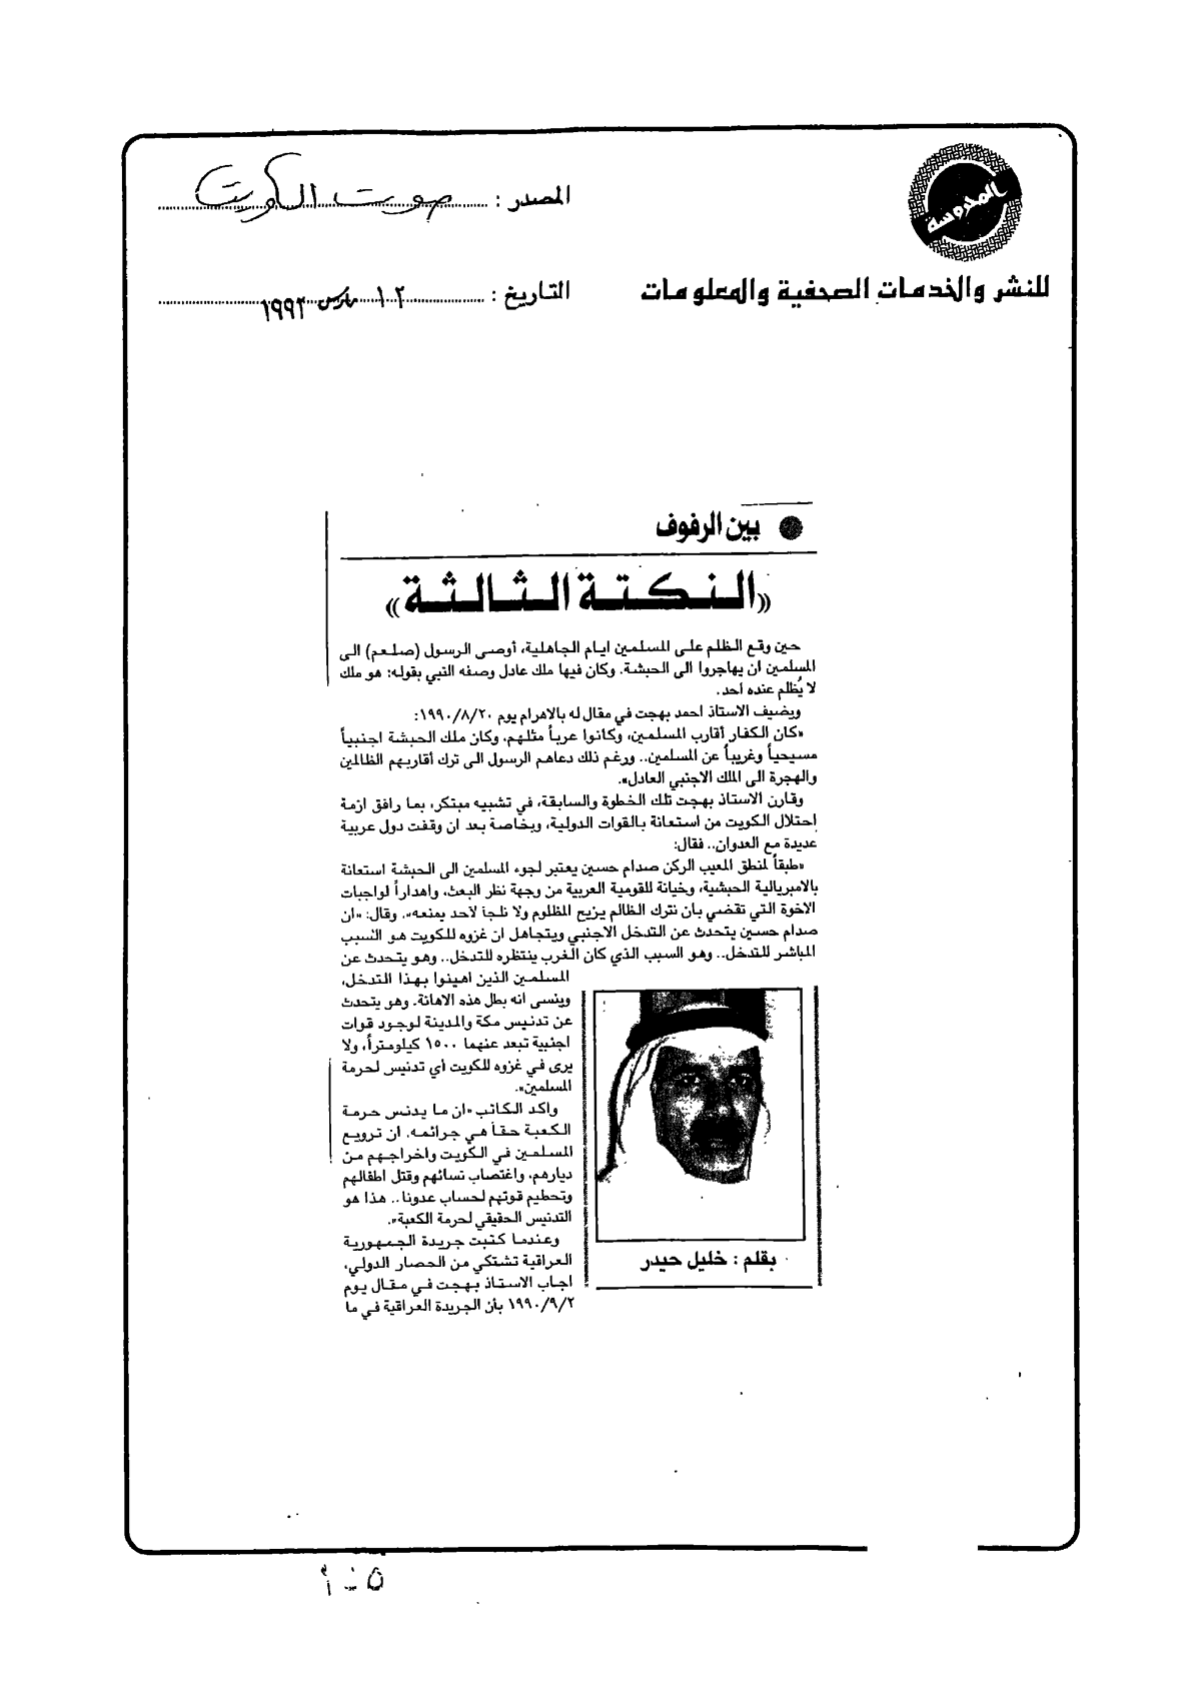 المحروسة
للنشر والخدمات الصحفية والمعلومات
المصدر : صوت الكويت
التاريخ : مارس ١٩٩٢
بين الرفوف
«النكتة الثالثة»
حين وقع الظلم على المسلمين ايام الجاهلية، أوصى الرسول (صلعم) الى
المسلمين ان يهاجروا الى الحبشة. وكان فيها ملك عادل وصفه النبي بقوله: هو ملك
لا يُظلم عنده احد.
ويضيف الاستاذ احمد بهجت في مقال له بالاهرام يوم ١٩٩٠/٨/٢٠:
«كان الكفار أقارب المسلمين، وكانوا عرباً مثلهم، وكان ملك الحبشة اجنبياً
مسيحياً وغريباً عن المسلمين.. ورغم ذلك دعاهم الرسول الى ترك أقاربهم الظالمين
والهجرة الى الملك الاجنبي العادل».
وقارن الاستاذ بهجت تلك الخطوة والسابقة، في تشبيه مبتكر، بما رافق ازمة
إحتلال الكويت من استعانة بالقوات الدولية، وبخاصة بعد ان وقفت دول عربية
عديدة مع العدوان.. فقال:
«طبقاً لمنطق المعيب الركن صدام حسين يعتبر لجوء المسلمين الى الحبشة استعانة
بالامبريالية الحبشية، وخيانة للقومية العربية من وجهة نظر البعث، واهداراً لواجبات
الاخوة التي تقضي بأن نترك الظالم يزيح المظلوم ولا نلجأ لاحد يمنعه». وقال: «ان
صدام حسين يتحدث عن التدخل الاجنبي ويتجاهل ان غزوه للكويت هو السبب
المباشر للتدخل.. وهو السبب الذي كان الغرب ينتظره للتدخل.. وهو يتحدث عن
المسلمين الذين اهينوا بهذا التدخل،
وينسى انه بطل هذه الاهانة. وهو يتحدث
عن تدنيس مكة والمدينة لوجود قوات
اجنبية تبعد عنهما ١٥٠٠ كيلومتراً، ولا
يرى في غزوه للكويت أي تدنيس لحرمة
المسلمين».
واكد الكاتب «ان ما يدنس حرمة
الكعبة حقاً هي جرائمه. ان ترويع
المسلمين في الكويت واخراجهم من
ديارهم، واغتصاب نسائهم وقتل اطفالهم
وتحطيم قوتهم لحساب عدونا.. هذا هو
التدنيس الحقيقي لحرمة الكعبة».
وعندما كتبت جريدة الجمهورية
العراقية تشتكي من الحصار الدولي،
اجاب الاستاذ بهجت في مقال يوم
١٩٩٠/٩/٢ بأن الجريدة العراقية في ما
بقلم : خليل حيدر